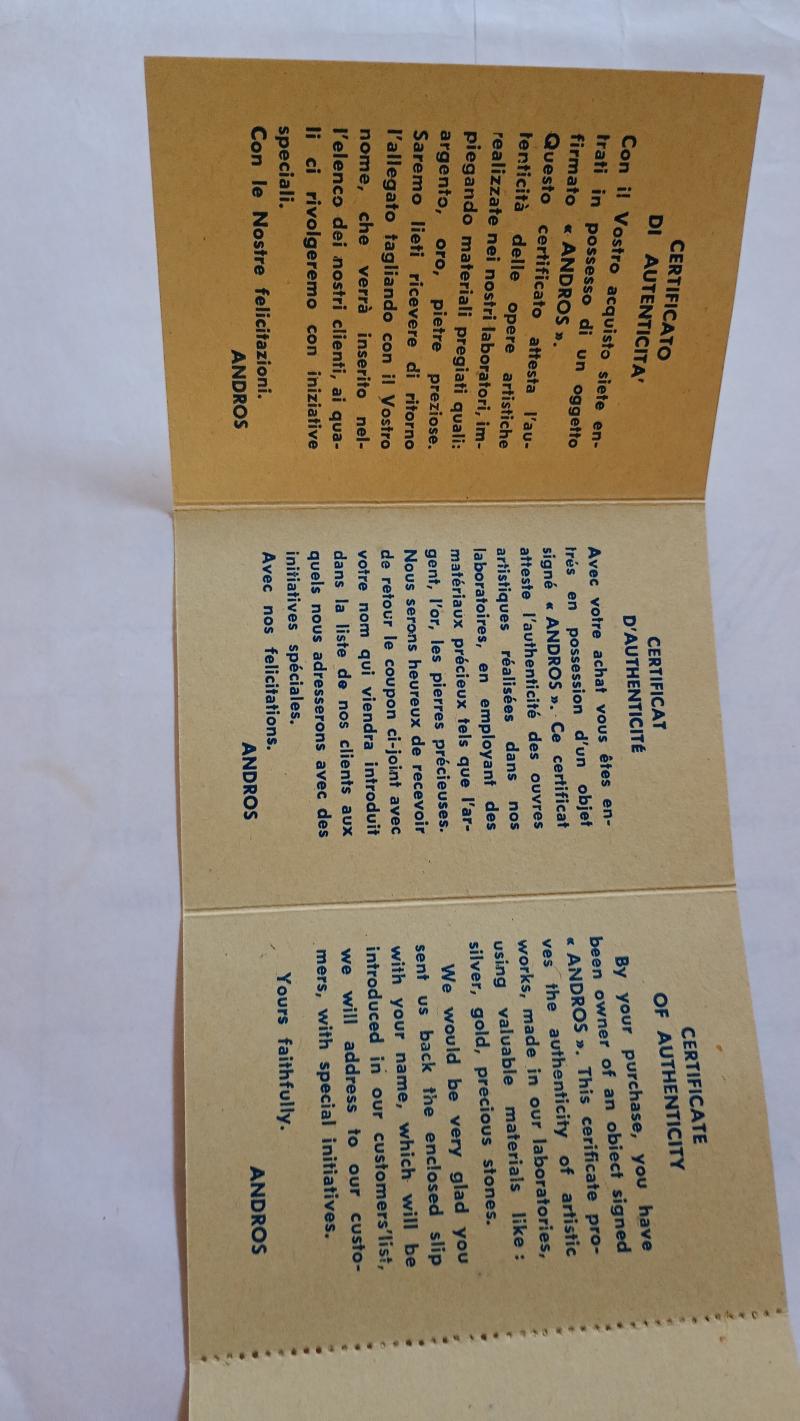 CERTIFICATO
DI AUTENTICITA'
Con il Vostro acquisto siete en-
trati in possesso di un oggetto
firmato « ANDROS ».
Questo certificato attesta l'au-
tenticità delle opere artistiche
realizzate nei nostri laboratori, im-
piegando materiali pregiati quali:
argento, oro, pietre preziose.
Saremo lieti ricevere di ritorno
l'allegato tagliando con il Vostro
nome, che verrà inserito nel-
l'elenco dei nostri clienti, ai qua-
li ci rivolgeremo con iniziative
speciali.
Con le Nostre felicitazioni.
ANDROS
CERTIFICAT
D'AUTHENTICITÉ
Avec votre achat vous êtes en-
trés en possession d'un objet
signé « ANDROS ». Ce certificat
atteste l'authenticité des ouvres
artistiques réalisées dans nos
laboratoires, en employant des
matériaux précieux tels que l'ar-
gent, l'or, les pierres précieuses.
Nous serons heureux de recevoir
de retour le coupon ci-joint avec
votre nom qui viendra introduit
dans la liste de nos clients aux
quels nous adresserons avec des
initiatives spéciales.
Avec nos felicitations.
ANDROS
CERTIFICATE
OF AUTHENTICITY
By your purchase, you have
been owner of an obiect signed
« ANDROS ». This cerificate pro-
ves the authenticity of artistic
works, made in our laboratories,
using valuable materials like :
silver, gold, precious stones.
We would be very glad you
sent us back the enclosed slip
with your name, which will be
introduced in our customers'list,
we will address to our custo-
mers, with special initiatives.
Yours faithfully.
ANDROS